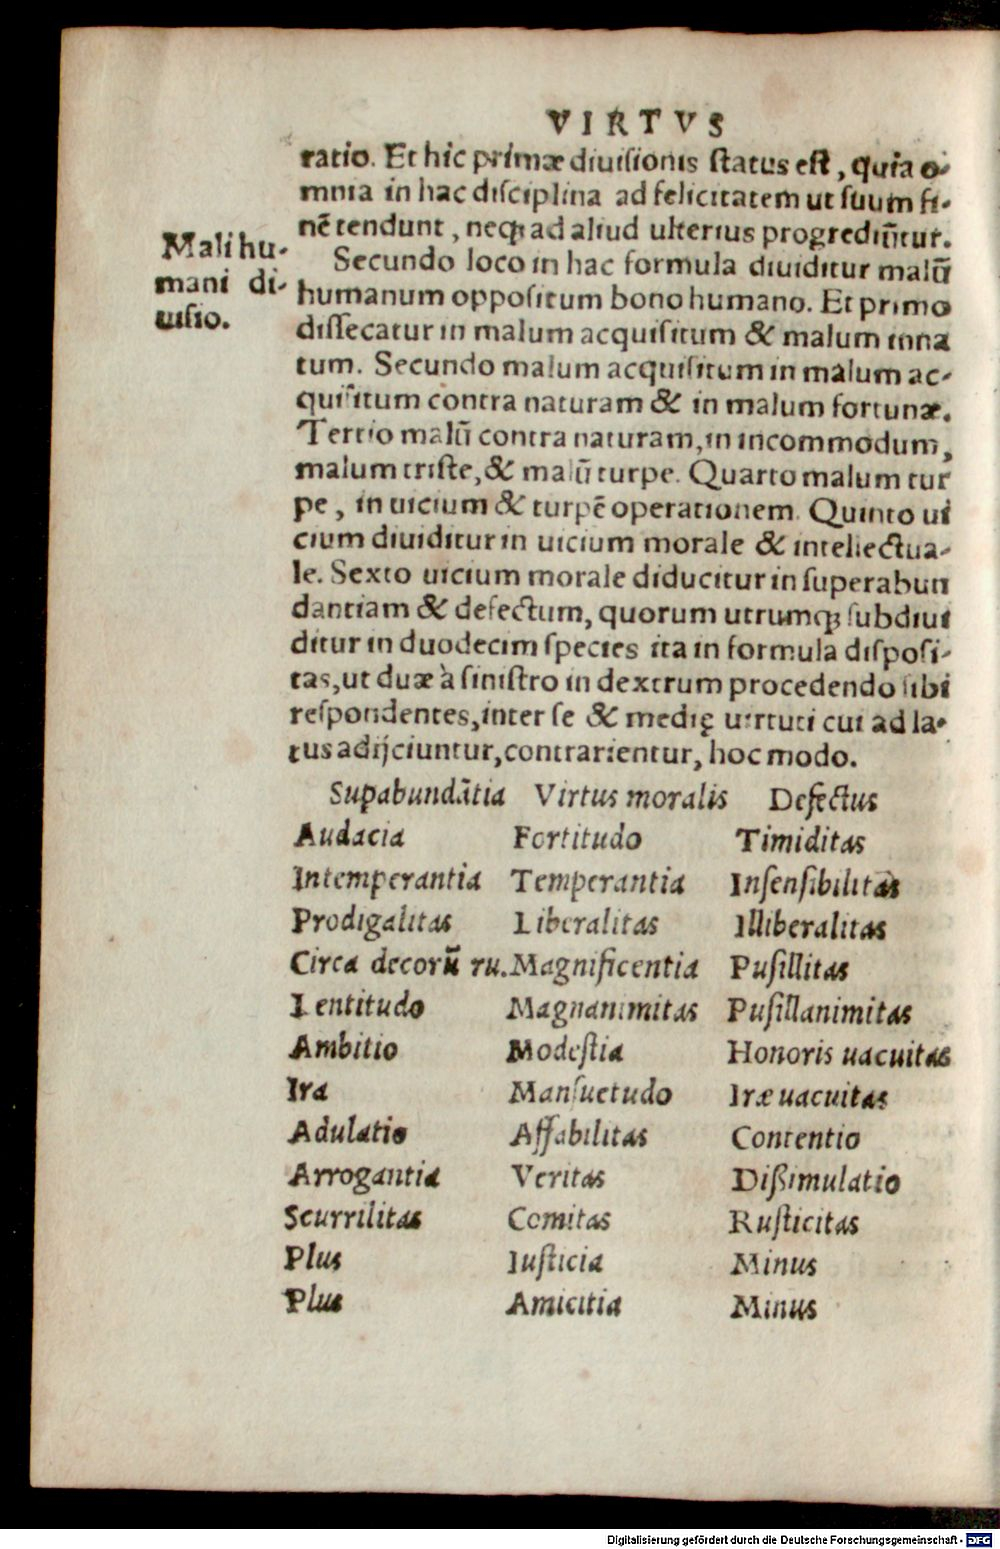 VIRTVS
ratio. Et hic primæ diuisionis status est, quia o-
mnia in hac disciplina ad felicitatem ut suum fi-
nẽ tendunt, neqꝫ ad aliud ulterius progrediũtur.
Mali hu-
mani di-
uisio.
Secundo loco in hac formula diuiditur malũ
humanum oppositum bono humano. Et primo
dissecatur in malum acquisitum & malum inna
tum. Secundo malum acquisitum in malum ac-
quisitum contra naturam & in malum fortunæ.
Tertio malũ contra naturam, in incommodum,
malum triste, & malũ turpe. Quarto malum tur
pe, in uicium & turpẽ operationem. Quinto ui
cium diuiditur in uicium morale & intellectua-
le. Sexto uicium morale diducitur in superabun
dantiam & defectum, quorum utrumqꝫ subdiui
ditur in duodecim species ita in formula disposi-
tas, ut duæ à sinistro in dextrum procedendo sibi
respondentes, inter se & medię uirtuti cui ad la-
tus adijciuntur, contrarientur, hoc modo.
Supabundãtia Virtus moralis Defectus
Audacia Fortitudo Timiditas
Intemperantia Temperantia Insensibilitas
Prodigalitas Liberalitas Illiberalitas
Circa decorũ ru. Magnificentia Pusillitas
Lentitudo Magnanimitas Pusillanimitas
Ambitio Modestia Honoris uacuitas
Ira Mansuetudo Iræ uacuitas
Adulatio Affabilitas Contentio
Arrogantia Veritas Dißimulatio
Scurrilitas Comitas Rusticitas
Plus Iusticia Minus
Plus Amicitia Minus
Digitalisierung gefördert durch die Deutsche Forschungsgemeinschaft - DFG